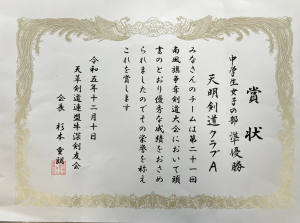 賞状
中学生女子の部 準優勝
天明剣道クラブA
みなさんのチームは第二十一回
南風旗争奪剣道大会において頭
書のとおり優秀な成績をおさめ
られましたのでその栄誉を称え
これを賞します
令和五年十二月十日
天草剣道連盟牛深剣友会
会長 杉本重明